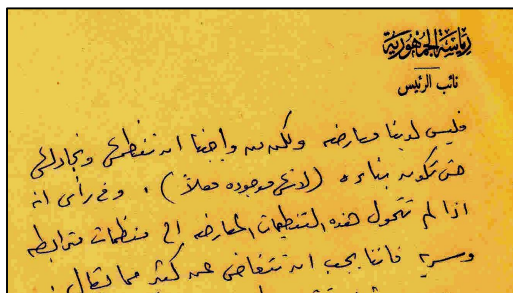 رئاسة الجمهورية
نائب الرئيس
فليس لدينا معارضه ولكن من واجبنا ان ننظمها ونجادلها
حتى تكون بناءه (لانها موجوده فعلاً) . وفى رأى انه
اذا لم تتحول هذه التنظيمات المعارضه الى منظمات مترابطه
وسريه فاننا يجب ان نتغاضى عن كثير مما يقال